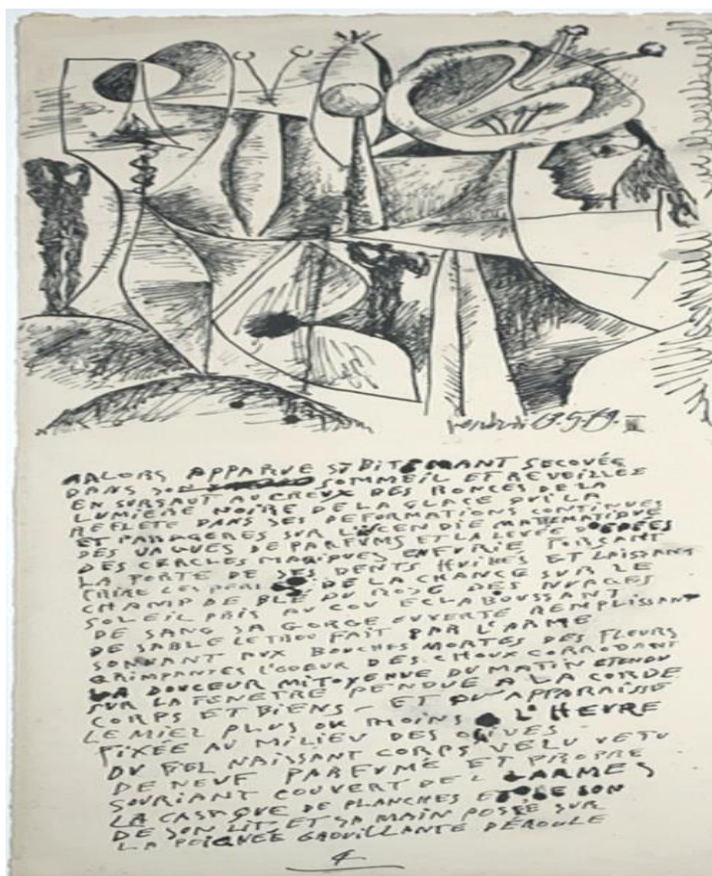 vendredi 19.5.69. III
ALORS APPARUE SUBITEMANT SECOUÉE
DANS SON SOMMEIL ET REVEILLEE
EN SURSAUT AU CREUX DES RONCES DE LA
LUMIERE NOIRE DE LA GLACE QUI LA
REFLETE DANS SES DEFORMATIONS CONTINUES
ET PASSAGERES SUR L'INCENDIE MATHEMATIQUE
DES VAGUES DE PARFUMS ET LA LEVÉE D'EPÉES
DES CERCLES MAGIQUES EN FURIE FORSANT
LA PORTE DE SES DENTS HUILEES ET LAISSANT
LES DE LA CHANCE SUR LE
CHAMP DE BLÉ DU ROSE DES NUAGES
SOLEIL PRIS AU COU ECLABOUSSANT
DE SANG SA GORGE OUVERTE REMPLISSANT
DE SABLE LE TROU FAIT PAR L'ARME
SONNANT AUX BOUCHES MORTES DES FLEURS
GRIMPANTES L'ODEUR DES CHOUX CORRODANT
LA DOUCEUR MITOYENNE DU MATIN ETENDU
SUR LA FENETRE PENDUE A LA CORDE
CORPS ET BIENS - ET QU'APPARAISSE
LE MIEL PLUS OU MOINS A L'HEURE
FIXÉE AU MILIEU DES OLIVES
DU FIEL NAISSANT CORPS VELU VETU
DE NEUF PARFUMÉ ET PROPRE
SOURIANT COUVERT DE LARMES
LA CASAQUE DE PLANCHES ET DE SON
DE SON LIT ET SA MAIN POSÉE SUR
LA POIGNÉE GROUILLANTE DÉROULE
4